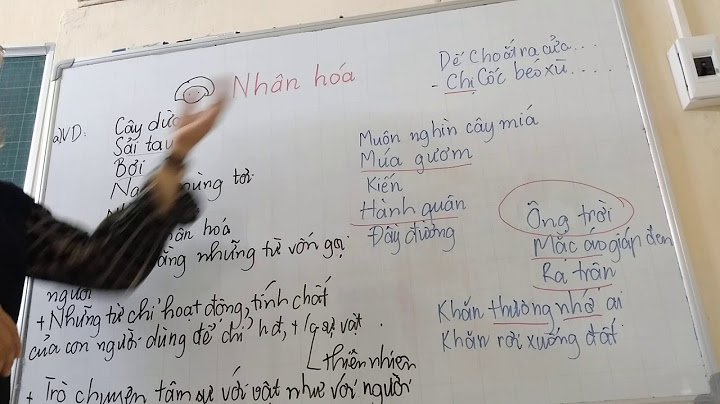 Nhân hóa
a) VD: Cây dừa
Sải tay
Bơi
hóa
những từ vốn gọi
người
+ Những từ chỉ hoạt động, tính chất
của con người dùng để chỉ hđ, t/c sự vật.
thiên nhiên
+ Trò chuyện tâm sự với vật như với người
Muôn nghìn cây miá
Múa gươm
Kiến
Hành quân
Đầy đường
Dế Choắt ra cửa....
- Chị Cốc béo xù.....
Ông trời
Mặc áo giáp đen
Ra trận
Khăn thương nhớ ai
Khăn rơi xuống đất